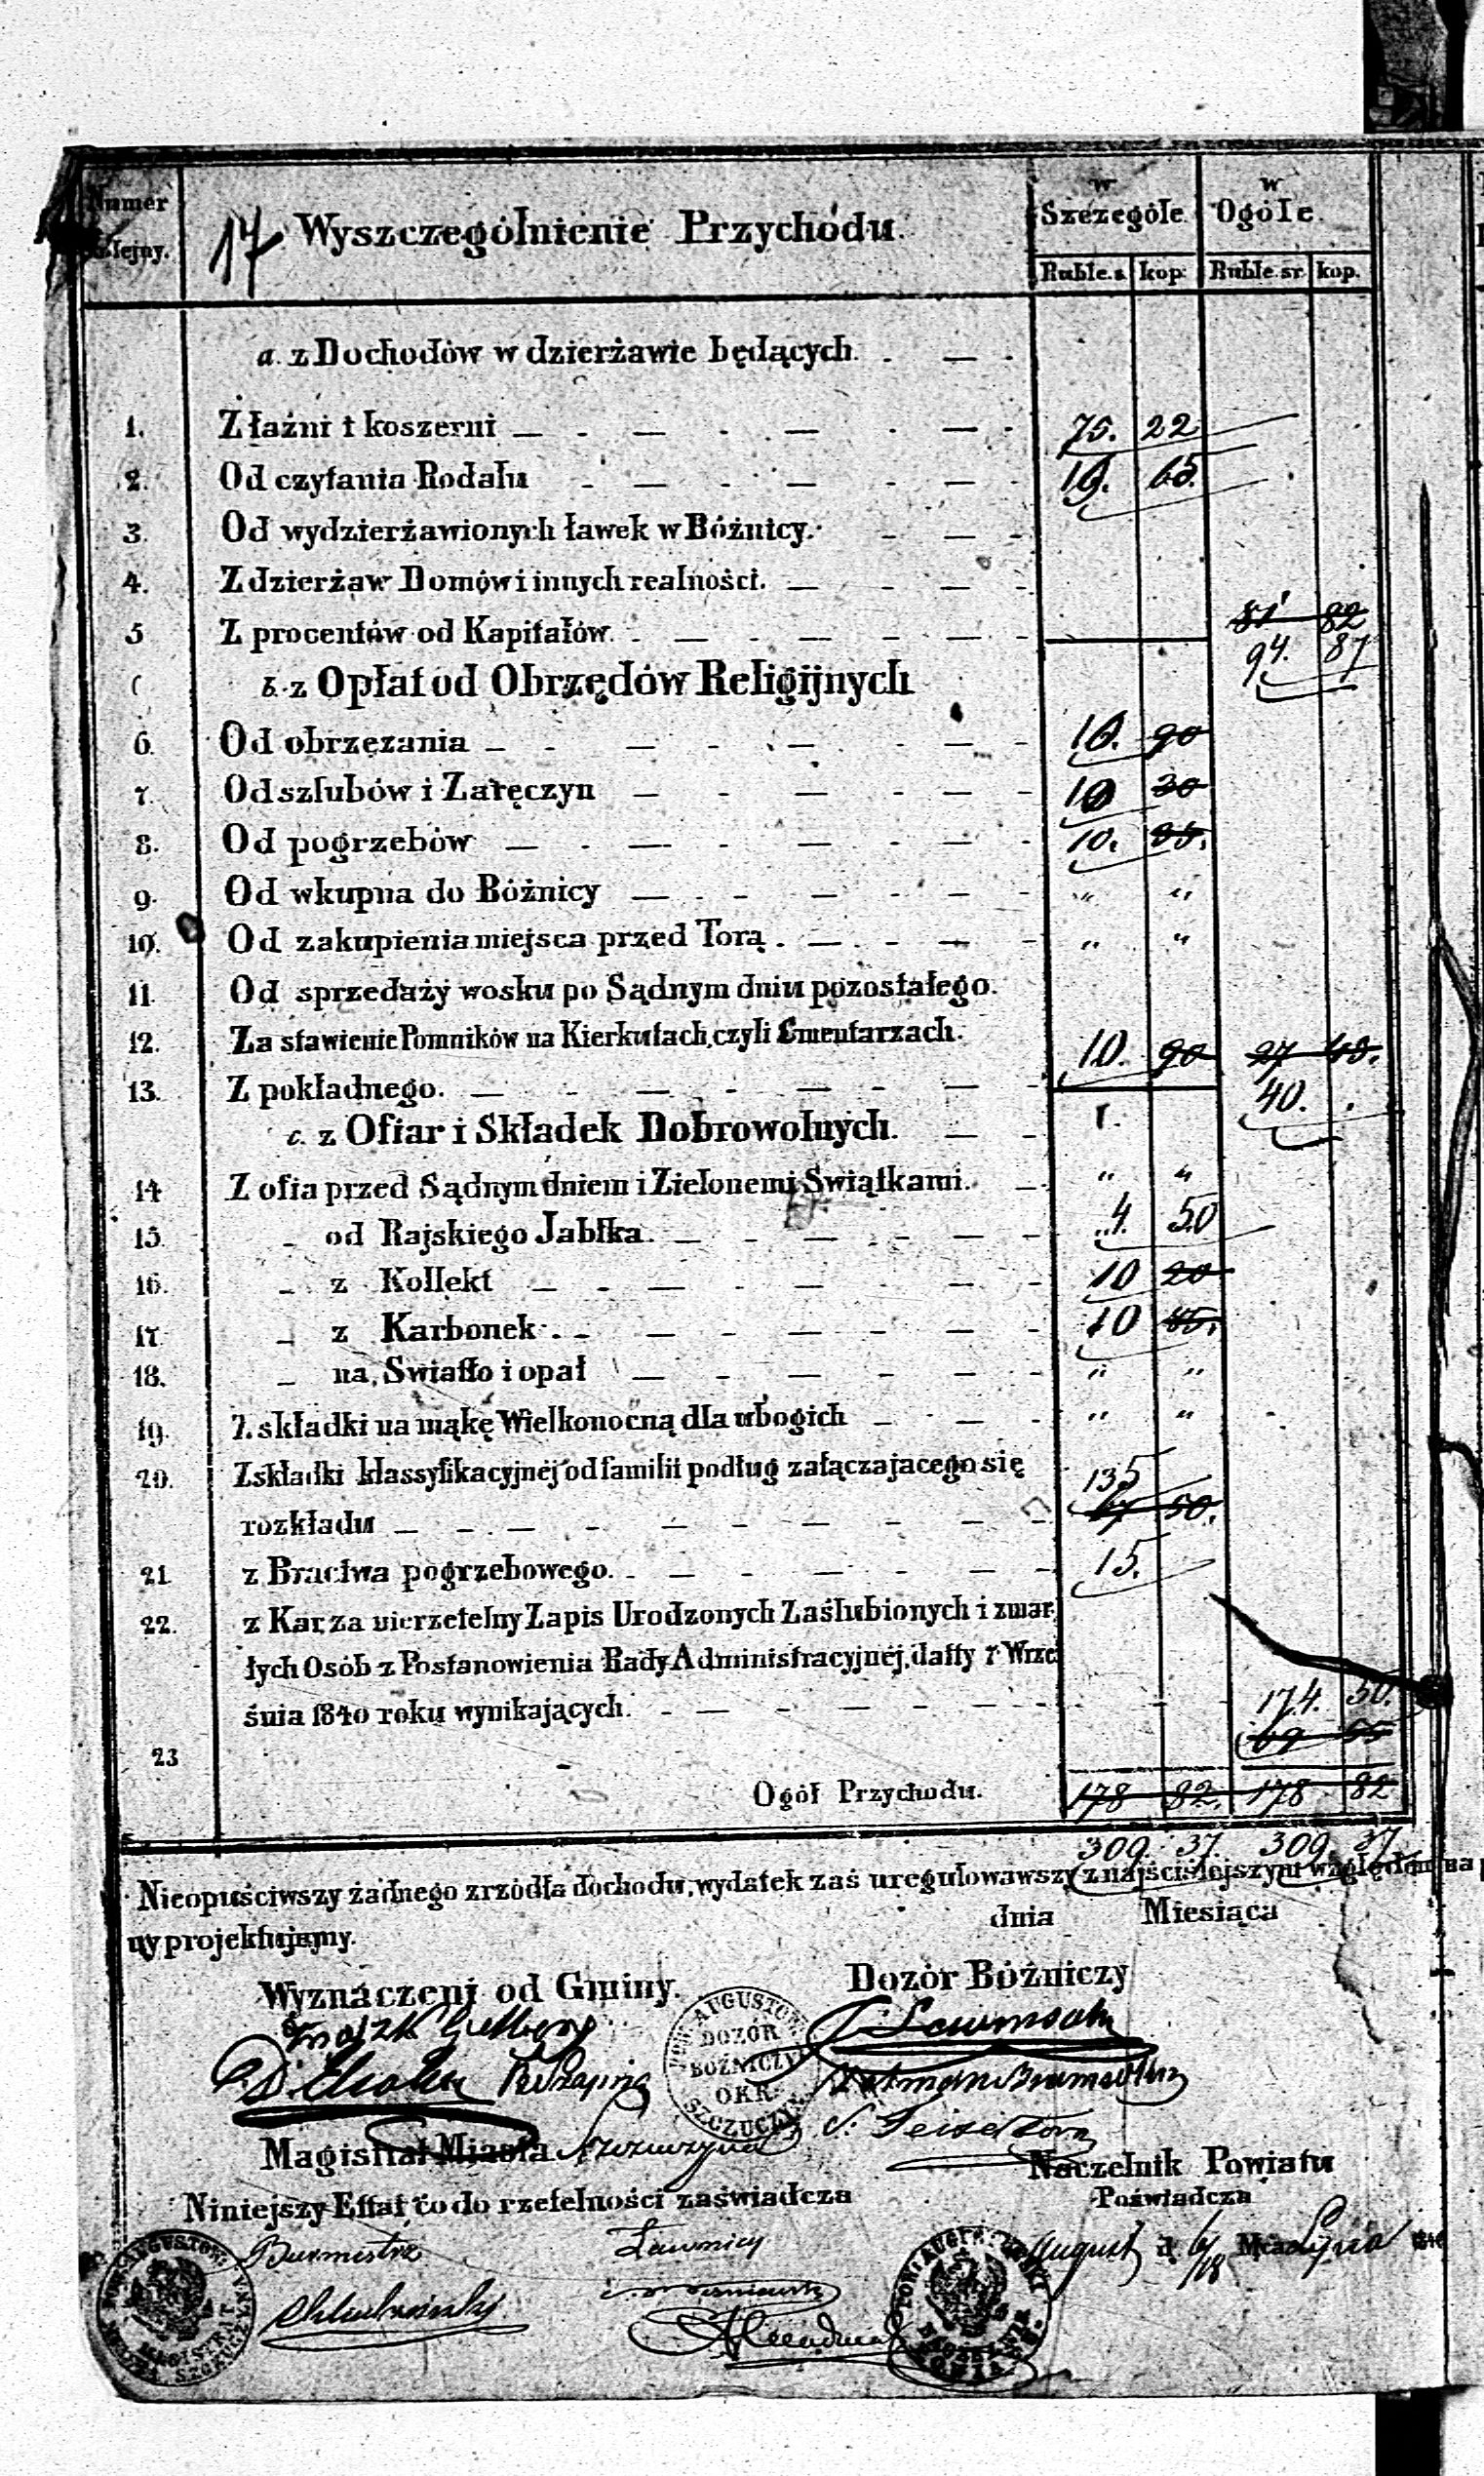 Numer Kolejny.
17 Wyszczególnienie Przychodu.
w Szczególe w Ogóle.
Ruble. s. kop: Ruble sr. kop.
a. z Dochodów w dzierżawie będących. . — .
1. Z łaźni i koszerni — 75. 22
2. Od czytania Rodału — 19. 65.
3. Od wydzierżawionych ławek w Bóżnicy.
4. Z dzierżaw Domów i innych realności.
81 82
5 Z procentów od Kapitałów.
94. 87
b. z Opłat od Obrzędów Religijnych
6. Od obrzęzania — 10. 90
7. Od szlubów i Zaręczyn — 10 30
8. Od pogrzebów — 10. 35.
9. Od wkupna do Bóżnicy — " "
10. Od zakupienia miejsca przed Torą. — " "
11. Od sprzedaży wosku po Sądnym dniu pozostałego.
12. Za stawienie Pomników na Kierkutach, czyli Cmentarzach.
10. 90 27 45.
13. Z pokładnego. —
40. .
c. z Ofiar i Składek Dobrowolnych. —
14 Z ofia przed Sądnym dniem i Zielonemi Swiątkami. — " "
15. - od Rajskiego Jabłka. — 4. 50
16. - z Kollekt — 10 20
17. - z Karbonek. — 10 45.
18. - na, Swiatło i opał — " "
19. Z składki na mąkę Wielkonocną dla ubogich — " "
20. Z składki klassyfikacyjnéj od familii podług załączajacego się 135
rozkładu — 67 50.
21. z Bractwa pogrzebowego. — 15.
22. z Kar, za nierzetelny Zapis Urodzonych Zaślubionych i zmar
łych Osób z Postanowienia Rady Administracyjnéj, datty 7 Wrze
śnia 1840 roku wynikających. — 174. 50.
69 55
23
Ogół Przychodu. 178 82. 178 82
309. 37. 309. 37
Nieopuściwszy żadnego zrzódła dochodu, wydatek zaś uregulowawszy z najściślejszym względem na
ny projektujemy. dnia Miesiąca
Wyznaczeni od Gminy. Dozór Bóżniczy
POW. AUGUSTOW. DOZÓR BOŻNICZY OKR. SZCZUCZYN.
Magistrat Miasta Szczuczyna
Naczelnik Powiatu
Niniejszy Effat co do rzetelności zaświadcza Poświadcza
Burmistrz Ławnicy
August d. 6/18 Mca Lipca 1846